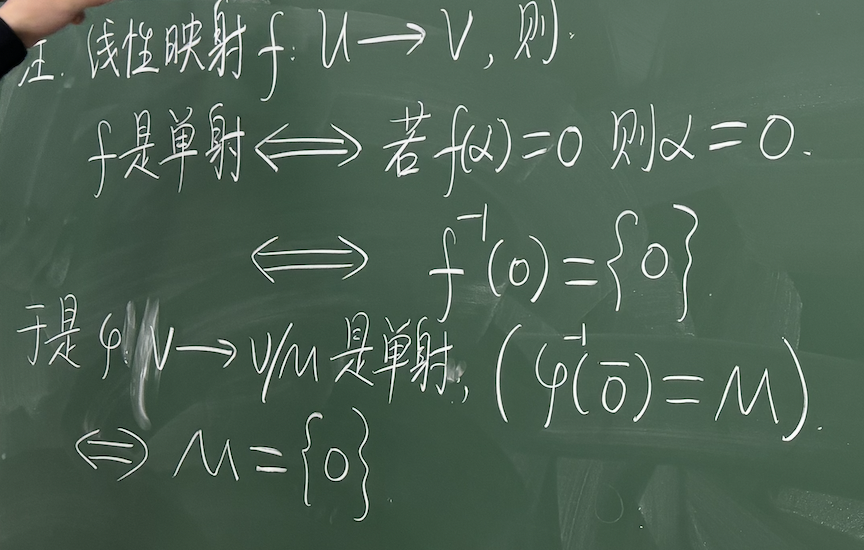 注. 线性映射 f: U → V, 则.
f是单射 ⟺ 若 f(α)=0 则 α=0.
⟺ f⁻¹(0)={0}
于是 φ: V → V/M 是单射, (φ⁻¹(0̄)=M).
⟺ M={0}